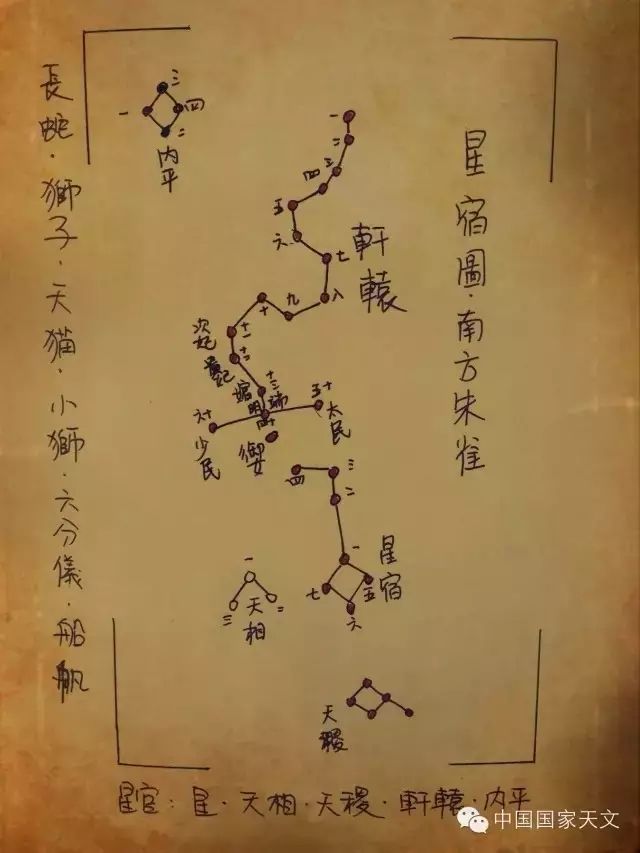 星宿圖·南方朱雀
長蛇·獅子·天猫·小獅·六分儀·船帆
三
一
四
二
内平
一
二
三
四
五
六
七
軒轅
八
九
十
十一
次妃
十二
十三
十四
十五
太民
十六
少民
御女
三
四
二
一
星宿
五
七
六
一
二
三
天相
天稷
星官：星·天相·天稷·軒轅·内平
中国国家天文